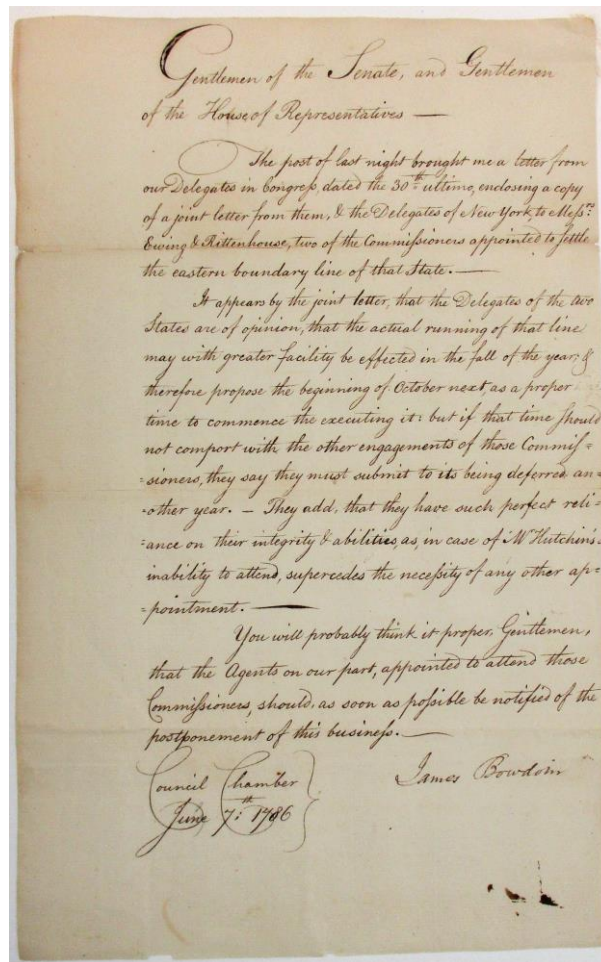 Gentlemen of the Senate, and Gentlemen
of the House of Representatives —
The post of last night brought me a letter from
our Delegates in Congress, dated the 30th ultimo, enclosing a copy
of a joint letter from them, & the Delegates of New York, to Messrs.
Ewing & Rittenhouse, two of the Commissioners appointed to settle
the eastern boundary line of that State. —
It appears by the joint letter, that the Delegates of the two
States are of opinion, that the actual running of that line
may with greater facility be effected in the fall of the year: &
therefore propose the beginning of October next, as a proper
time to commence the executing it: but if that time should
not comport with the other engagements of those Commis=
=sioners, they say they must submit to its being deferred an=
=other year. — They add, that they have such perfect reli=
=ance on their integrity & abilities, as, in case of Mr Hutchins's
inability to attend, supercedes the necessity of any other ap=
=pointment. —
You will probably think it proper, Gentlemen,
that the Agents on our part, appointed to attend those
Commissioners, should, as soon as possible be notified of the
postponement of this business. —
James Bowdoin
Council Chamber
June 7th: 1786